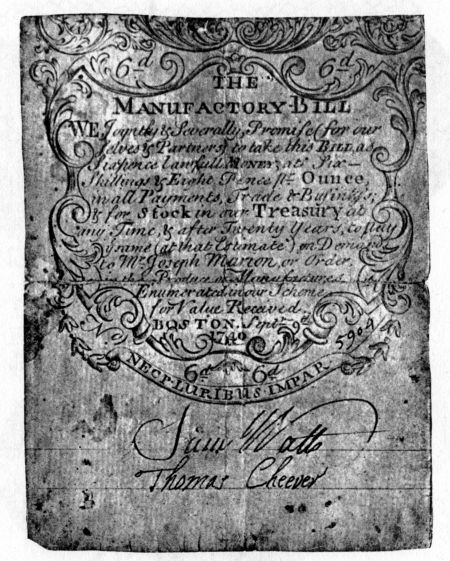 6d 6d
THE
MANUFACTORY-BILL
WE Joyntly & Severally, Promise (for our
selves & Partners) to take this BILL as
Sixpence lawfull Money, at Six-
Shillings & Eight Pence pr. Ounce,
in all Payments, Trade & Business;
& for Stock in our Treasury at
any Time, & after Twenty Years, to pay
ye same (at that Estimate) on Demand
to Mr. Joseph Marion, or Order
in the Produce or Manufactures
Enumerated in our Scheme,
for Value Received.
BOSTON, Septr. 9
1740
No
6d 6d
NEC PLURIBUS IMPAR
Sam Watts
Thomas Cheever